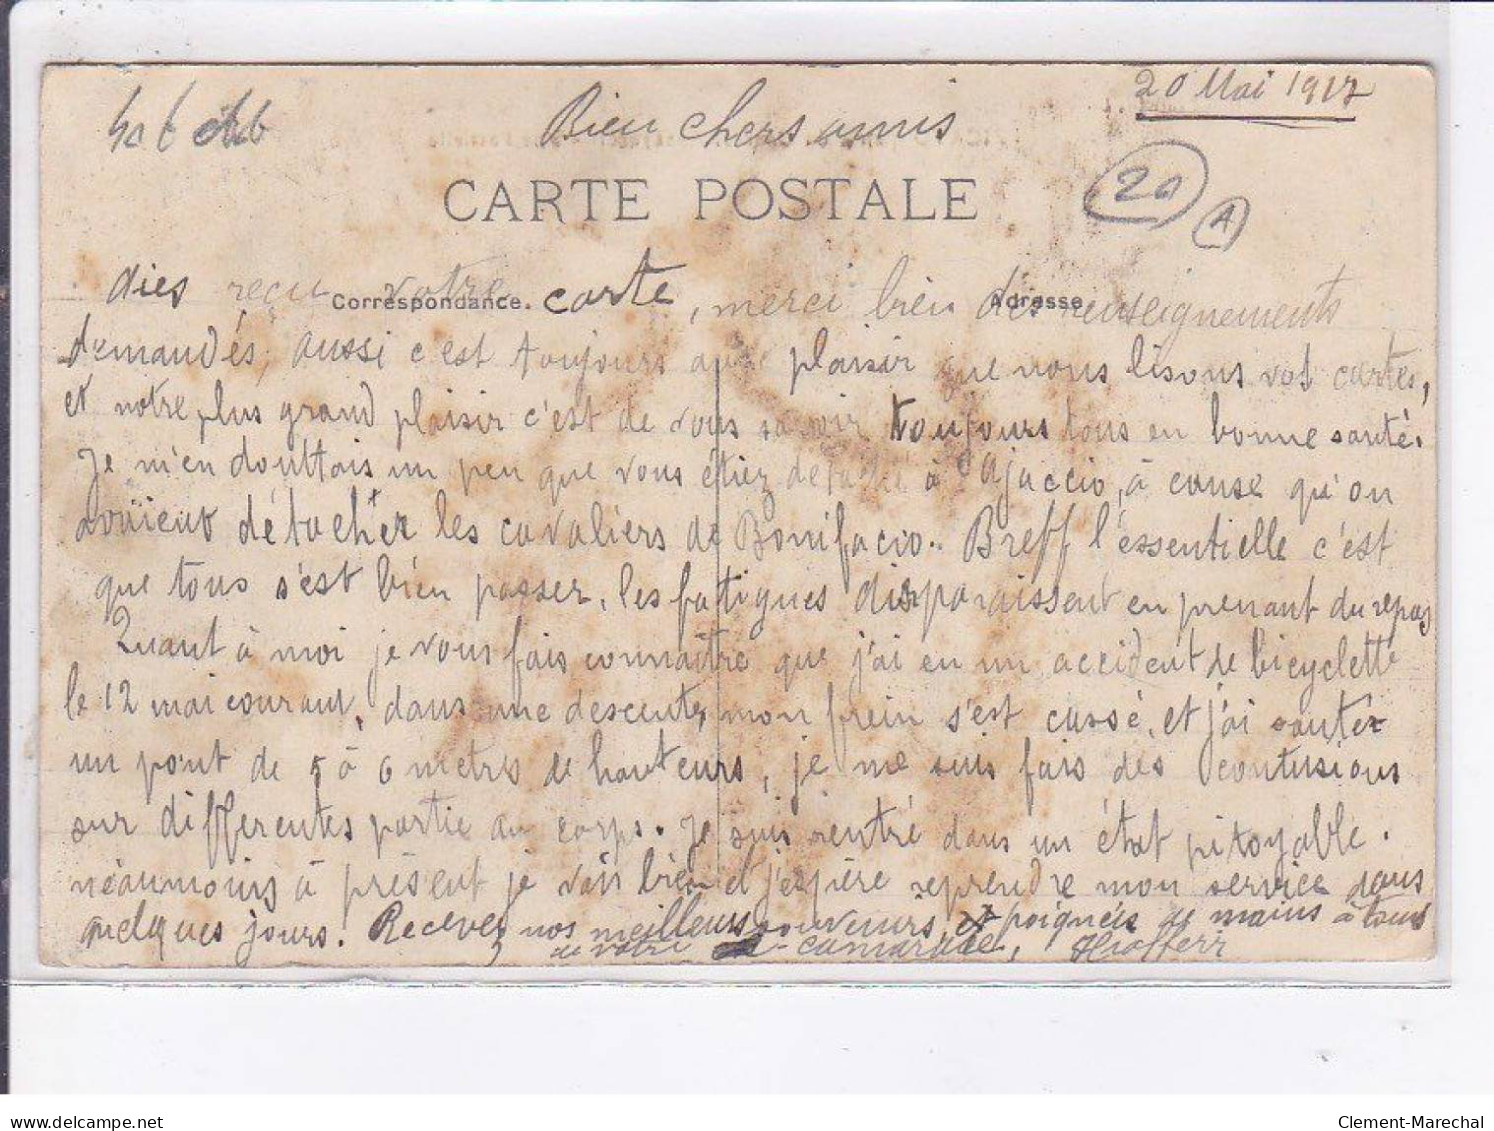 20 Mai 1917
Bien chers amis
CARTE POSTALE
20
A
Correspondance.
Adresse
reçu votre carte, merci bien des renseignements
demandés, aussi c'est toujours avec plaisir que nous lisons vos cartes,
et notre plus grand plaisir c'est de vous savoir toujours tous en bonne santé.
Je m'en douttais un peu que vous étiez détaché à Ajaccio, à cause qu'on
avaient détacher les cavaliers de Bonifacio.. Breff l'essentielle c'est
que tous s'est bien passer, les fatigues disparaissent en prenant du repos
Quant à moi je vous fais connaître que j'ai eu un accident de bicyclette
le 12 mai courant, dans une descente, mon frein s'est cassé, et j'ai sauter
un pont de 5 à 6 metres de hauteurs, je me suis fais des contusions
sur differentes partie du corps. Je suis rentré dans un état pitoyable.
néaumoins à présent je vais bien et j'espière reprendre mon service dans
quelques jours. Recevez nos meilleurs souvenirs et poignées de mains à tous
de votre camarade,
Clement-Marechal
delcampe.net